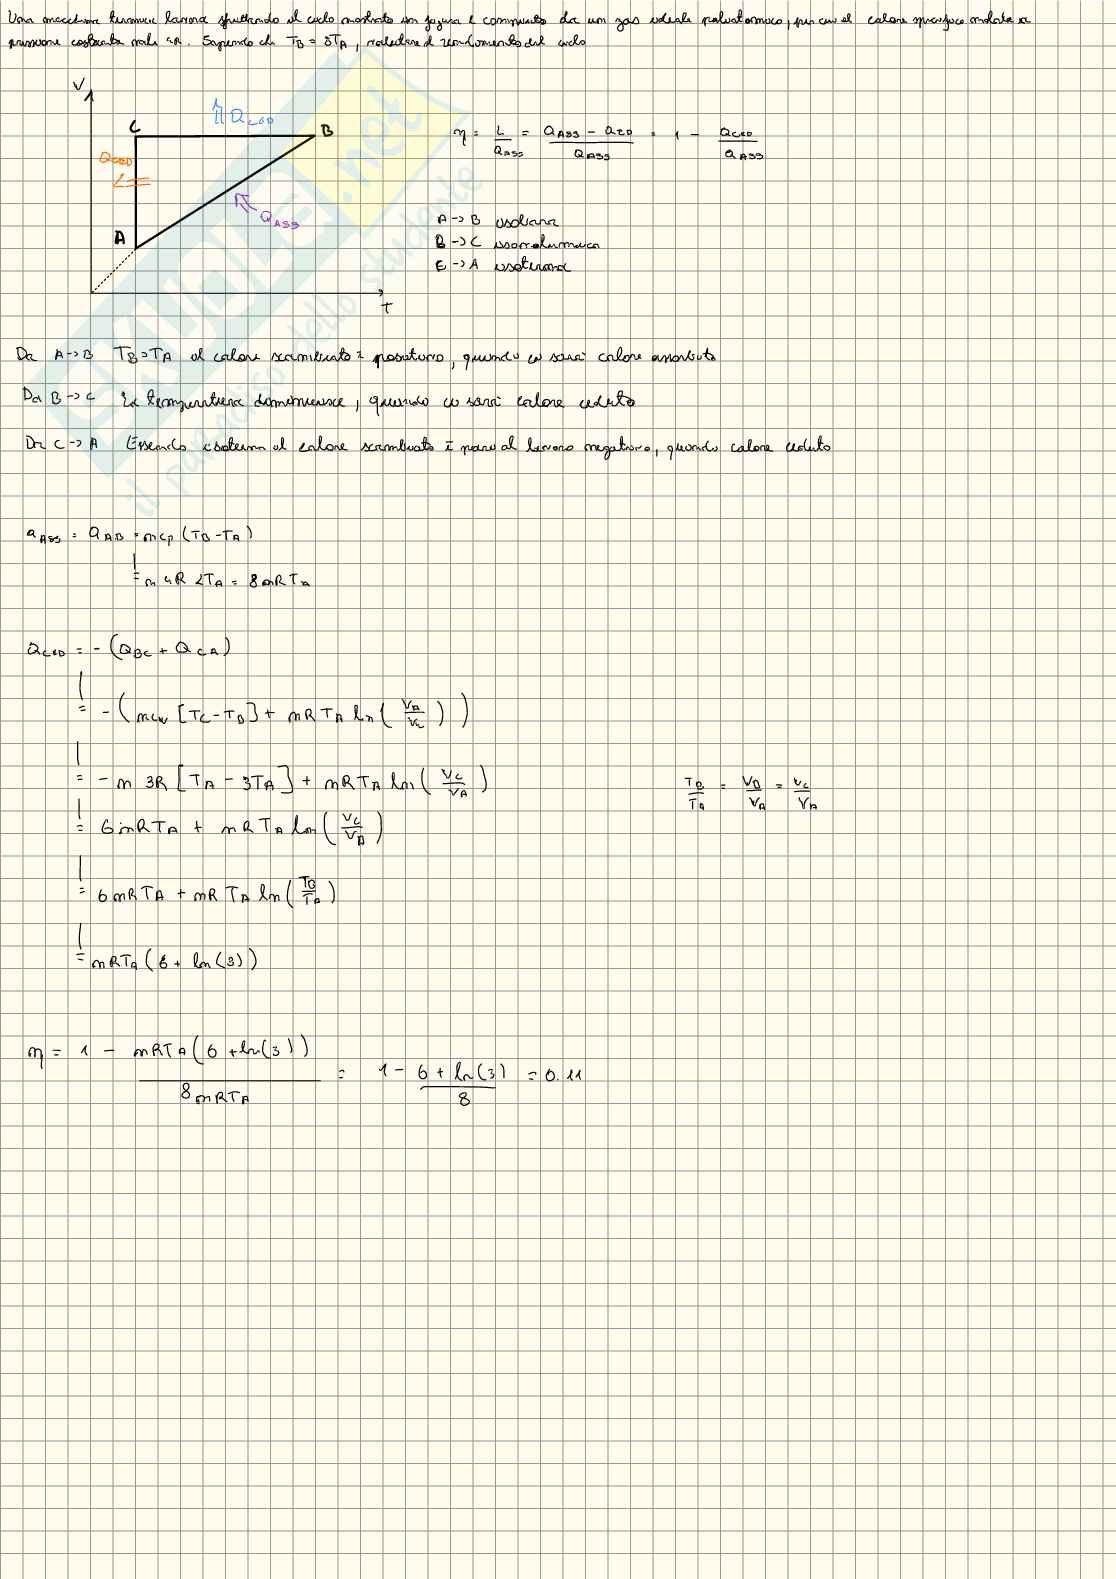 Una macchina termica lavora sfruttando il ciclo mostrato in figura e compiuto da un gas ideale poliatomico, per cui il calore specifico molare a
pressione costante vale 4R. Sapendo che TB = 3TA, calcolare il rendimento del ciclo
V
C
⇑ QCED
B
QCED
QASS
A
T
η = L/QASS = (QASS - QCED)/QASS = 1 - QCED/QASS
A → B isobara
B → C isovolumica
C → A isoterma
Da A → B TB > TA il calore scambiato è positivo, quindi ci sarà calore assorbito
Da B → C La temperatura diminuisce, quindi ci sarà calore ceduto
Da C → A Essendo isoterma il calore scambiato è pari al lavoro negativo, quindi calore ceduto
QASS = QAB = ncp (TB - TA)
= n 4R 2TA = 8nRTA
QCED = - (QBC + QCA)
= - (ncv [TC - TB] + nRTA ln (VA/VC))
= - n 3R [TA - 3TA] + nRTA ln (VC/VA)
TB/TA = VB/VA = VC/VA
= 6nRTA + nRTA ln (VC/VA)
= 6nRTA + nRTA ln (TB/TA)
= nRTA (6 + ln(3))
η = 1 - nRTA (6 + ln(3))/8nRTA = 1 - (6 + ln(3))/8 = 0.11
SKUOLA.net
il paradiso dello studente